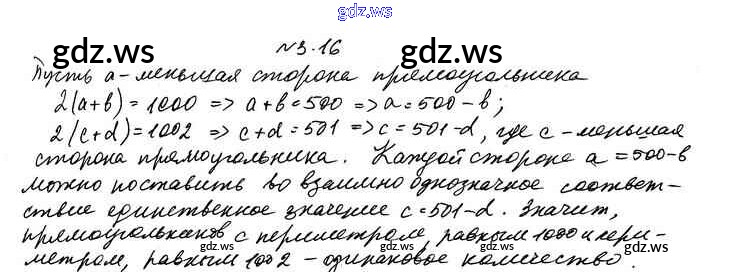 gdz.ws
№3.16
gdz.ws gdz.ws
Пусть a – меньшая сторона прямоугольника
2(a+b) = 1000 => a+b=500 => a=500-b;
2(c+d)=1002 => c+d=501 => c=501-d, где c – меньшая
сторона прямоугольника. Каждой стороне a=500-b
можно поставить во взаимно однозначное соответ-
ствие единственное значение c=501-d. Значит,
прямоугольников с периметром, равным 1000 и пери-
метром, равным 1002 – одинаковое количество.
gdz.ws gdz.ws